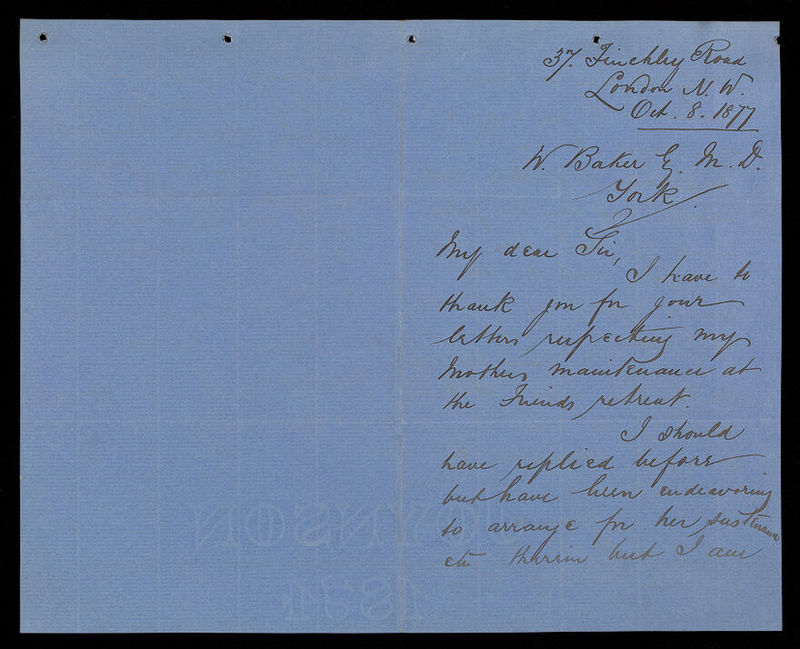 37. Finchley Road
London N. W.
Oct. 8. 1877
W. Baker E. M. D.
York.
My dear Sir,
I have to
thank you for your
letters respecting my
Mothers maintenance at
the Friends retreat.
I should
have replied before
but have been endeavoring
to arrange for her sustenance
etc therein but I am
JOYNSON